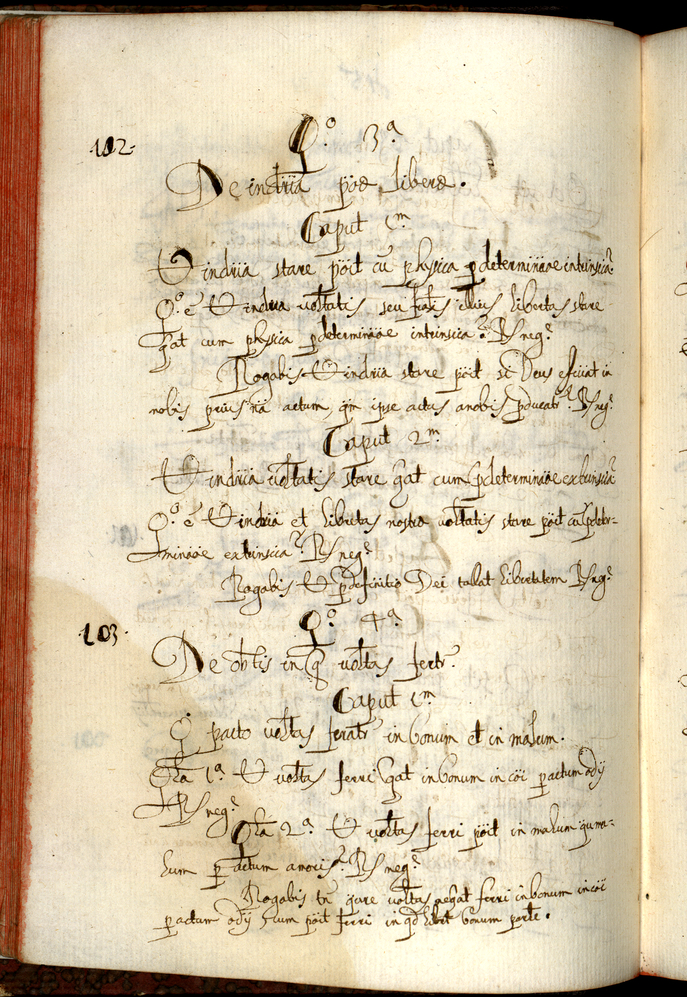 Q.º 3.ª
102.
De indr̃iia põæ liberæ.
Caput 1.m
V indr̃iia stare põit cũ physica p̱determin̄̃ae intrinsica?
Q.º ẽ V indr̃ia voltatis seu illius libertas stare
q̃at cum physica p̱determin̄̃ae intrinsica? R̃s neg.e
Rogabis V indr̃ia stare põit si Deus efficiat in
nobis prius nã actum, q̃m ipse actus a nobis p̱ducat.r? R̃s neg.e
Caput 2.m
V indr̃iia voltatis stare q̃at cum p̱determin̄̃ae extrinsica
Q.º ẽ V indr̃ia et libertas nostra voltatis stare põit cũ p̱deter=
minãoe extrinsica? R̃s neg.e
Rogabis V p̱definitio Dei tollat libertatem R̃s neg.e
Q.º 4.ª
103.
De obtis in q̃ voltas fertr.
Caput 1.m
Q.º pacto voltas feratr in bonum et in malum.
Q̃ta 1.ª V voltas ferri q̃at in bonum in cõi p̱ actum odij
R̃s neg.e
Q̃ta 2.ª V voltas ferri põit in malum qu ma=
lum p̱ actum amoris? R̃s neg.e
Rogabis tñ qure voltas negat ferri in bonum in cõi
p̱ actum odij cum põit ferri in qdlibet bonum parte.